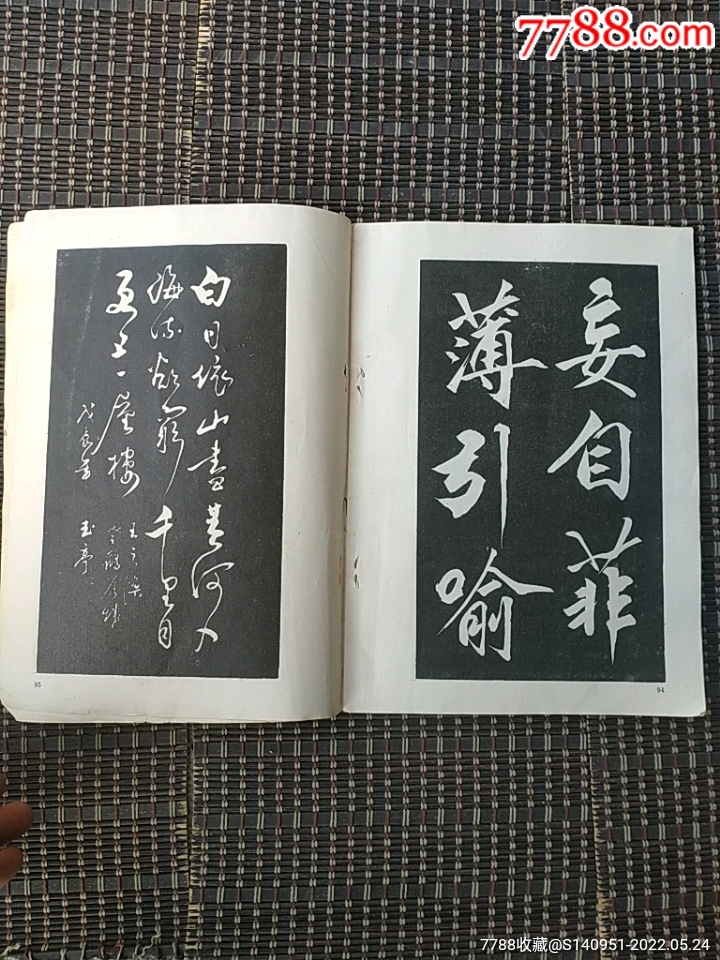 7788.com
妄自菲
薄引喻
94
白日依山盡黃河入
海流欲窮千里目
更上一層樓
王之渙
登鸛雀樓
戊辰春
玉亭
95
7788收藏@S140951-2022.05.24